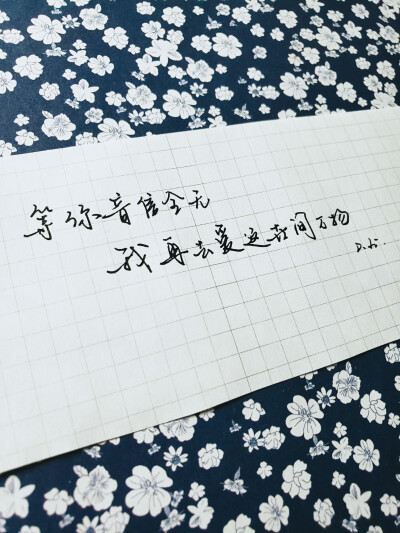 等你音信全无
我再去爱这世间万物
D.L.